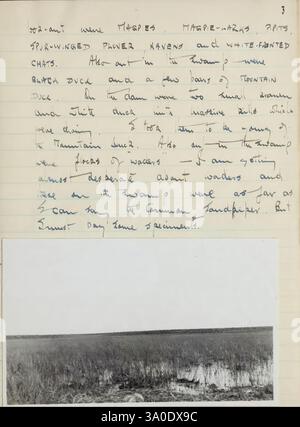 3
were MAGPIES, MAGPIE-LARKS, PIPITS,
SPUR-WINGED PLOVER, RAVENS and WHITE-FRONTED
CHATS. Also out in the swamp were
BLACK DUCK and a few pairs of MOUNTAIN
DUCK. On the dam were two small brown
and white duck with
were diving. I took them to be young of
the Mountain Duck. Also in the swamp
were flocks of waders — I am getting
almost desperate about waders and
these in the swamp went as far as
I can say to Common Sandpiper. But
I must say some specimens.
alamy
Image ID: 3A0DX9C
www.alamy.com